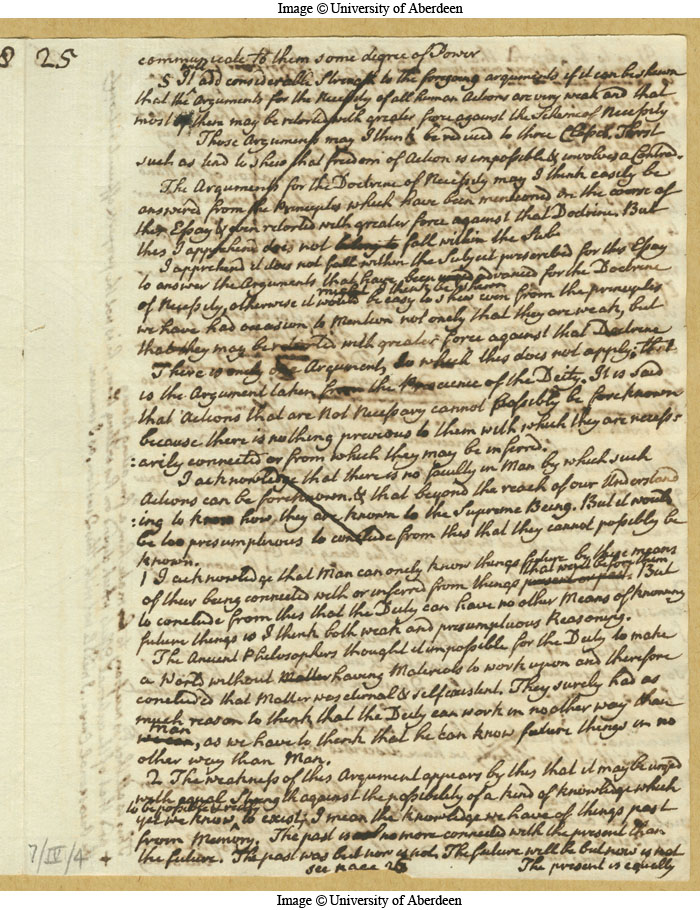 Image © University of Aberdeen
8 25
communicate to them some degree of Power
5 It add considerable Strength to the foregoing arguments if it can be shewn
that the Arguments for the Necessity of all human Actions are very weak and that
most of there may be retorted with greater force against the Scheme of Necessity
Those Arguments may I think be reduced to three Classes. First
such as tend to shew that freedom of Action is impossible & involves a Contra-
The Arguments for the Doctrine of Necessity may I think easily be
answered from the Principles which have been mentioned in the course of
this Essay & even retorted with greater force against that Doctrine. But
this I apprehend does not belong to fall within the Sub
I apprehend it does not fall within the Subject prescribed for this Essay
to answer the Arguments that have been used advanced for the Doctrine
might I think be shewn
of Necessity, otherwise it would be easy to shew even from the principles
we have had occasion to Mention not onely that they are weak, but
that they may be retorted with greater force against that Doctrine
There is onely one Argument, to which this does not apply; that
is the Argument taken from the Prescience of the Deity. It is said
that Actions that are Not Necessary cannot possibly be foreknown
because there is nothing previous to them with which they are necess-
:arily connected or from which they may be inferred.
I acknowledge that there is no faculty in Man by which such
Actions can be foreknown. & that beyond the reach of our Understand
:ing to know how they are known to the Supreme Being. But it would
be too presumptuous to conclude from this that they cannot possibly be
known.
1 I acknowledge that Man can onely know things future by these means
that went before them
of their being connected with or inferred from things present or past. But
to conclude from this that the Deity can have no other Means of knowing
future things is I think both weak and presumptuous Reasoning.
The Ancient Philosophers thought it impossible for the Deity to make
a World without Matter having Materials to work upon and therefore
concluded that Matter was eternal & selfexistent. They surely had as
much reason to think that the Deity can work in no other way than
Man
, as we have to think that he can know future things in no
other way than Man.
2 The weakness of this Argument appears by this that it may be urged
with equal Strength against the possibility of a kind of knowledge which
to be possible & really
yet we know, to exist; I mean the knowledge we have of things past
from Memory. The past is no more connected with the present than
the future. The past was but now is not. The future will be but now is not
see page 28 The present is equally
7/IV/4
Image © University of Aberdeen